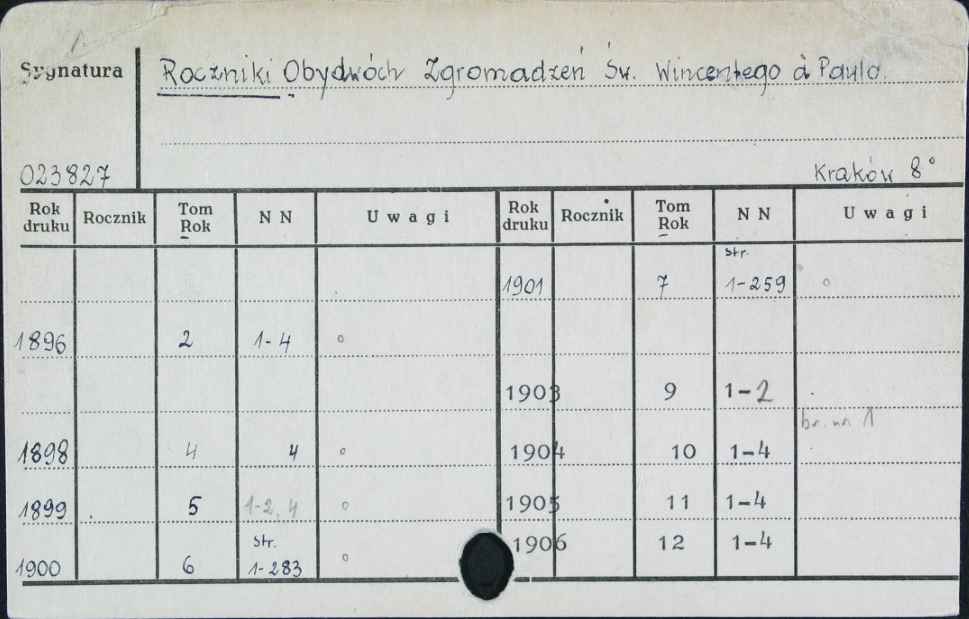 Sygnatura
Roczniki Obydwóch Zgromadzeń Św. Wincentego à Paulo.
023827
Kraków 8°
Rok druku Rocznik Tom Rok NN Uwagi Rok druku Rocznik Tom Rok NN Uwagi
str.
1901 7 1-259 o
1896 2 1-4 o
1903 9 1-2
br. nr 1
1898 4 4 o 1904 10 1-4
1899 5 1-2, 4 o 1905 11 1-4
str. 1906 12 1-4
1900 6 1-283 o